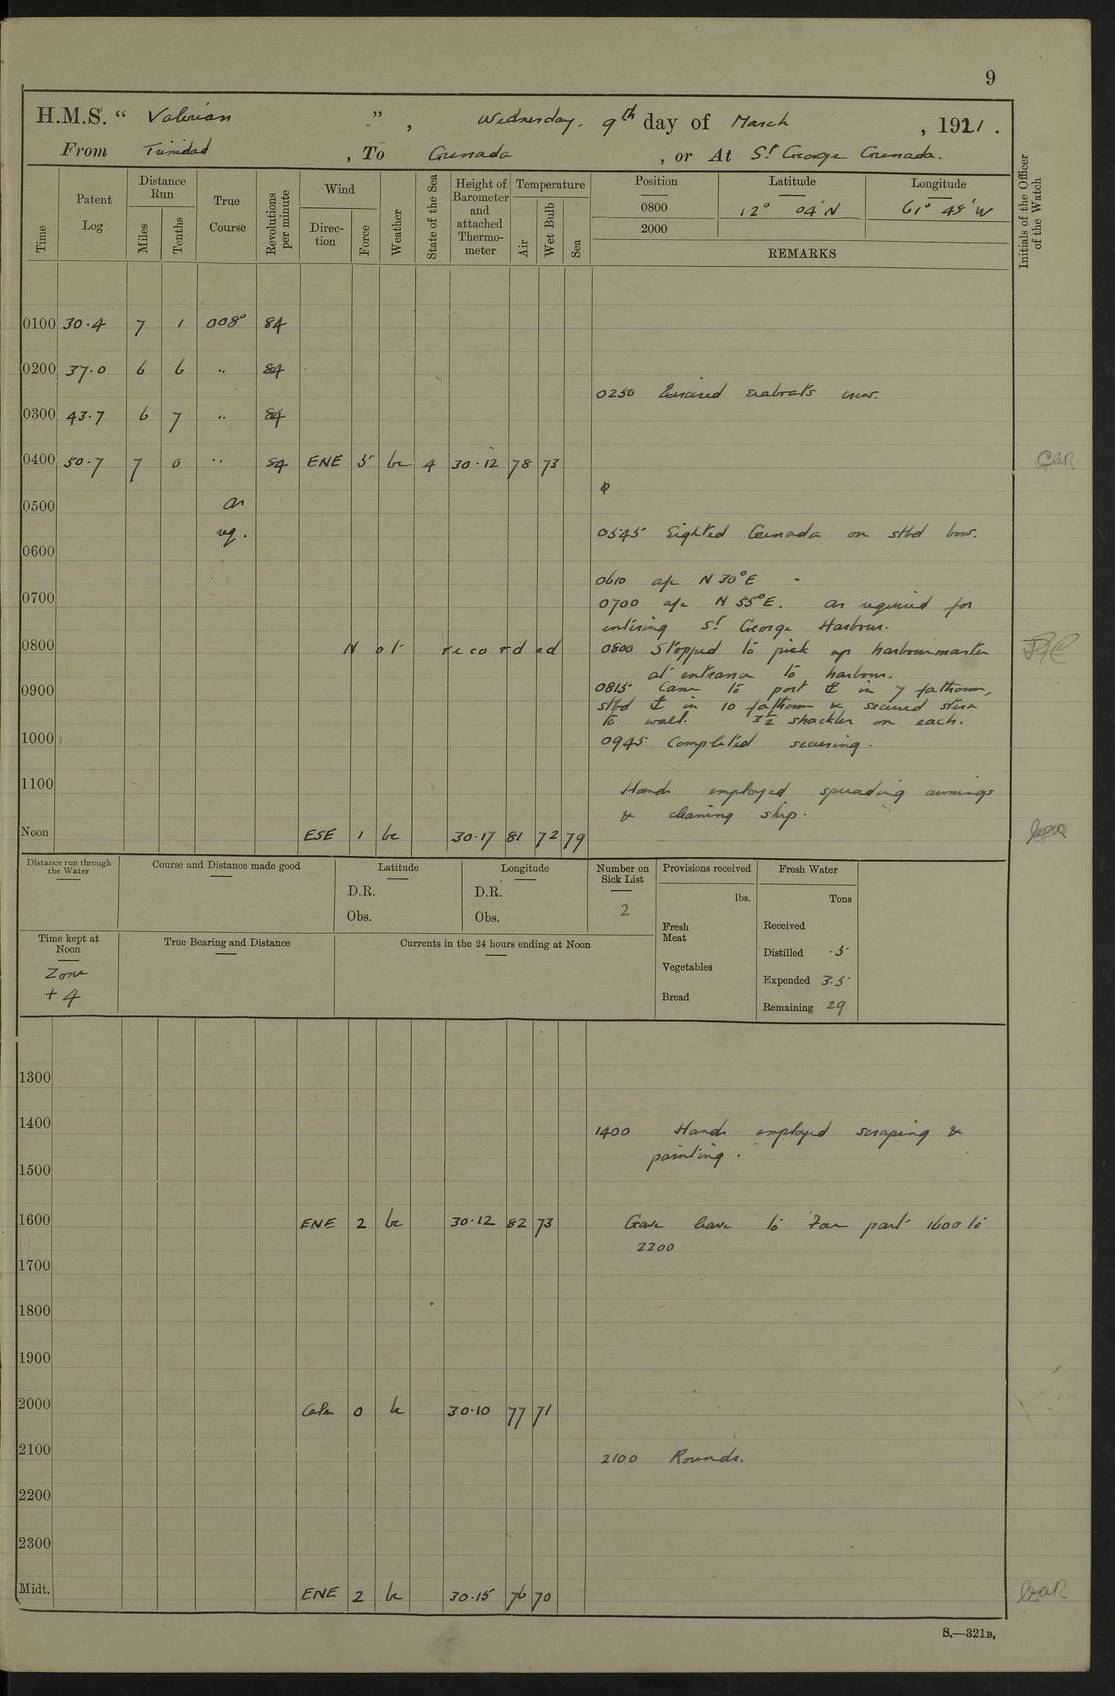 9
H.M.S. “ Valerian ” , Wednesday. 9th day of March , 1921 .
From Trinidad , To Grenada , or At St George Grenada.
Time
Patent Log
Distance Run
Miles
Tenths
True Course
Revolutions per minute
Wind
Direction
Force
Weather
State of the Sea
Height of Barometer and attached Thermometer
Temperature
Air
Wet Bulb
Sea
Position
0800
2000
Latitude
12° 04' N
Longitude
61° 48' W
REMARKS
Initials of the Officer of the Watch
0100 30.4 7 1 008° 84
0200 37.0 6 6 " 84
0250 Exercised seaboats crew.
0300 43.7 6 7 " 84
0400 50.7 7 0 " 84 ENE 5 bc 4 30.12 78 73
0500 as
req.
0545 Sighted Grenada on stbd bow.
0600
0610 a/c N 30° E
0700 0700 a/c N 55° E. as required for
entering St George Harbour.
0800 Not recorded 0800 Stopped to pick up harbourmaster
at entrance to harbour.
0900 0815 Came to port in 7 fathoms,
stbd in 10 fathoms & secured stern
to wall. 3½ shackles on each.
1000 0945 Completed securing.
1100 Hands employed spreading awnings
& cleaning ship.
Noon ESE 1 bc 30.17 81 72 79
Distance run through the Water
Course and Distance made good
Latitude
D.R.
Obs.
Longitude
D.R.
Obs.
Number on Sick List
2
Provisions received
lbs.
Fresh Meat
Vegetables
Bread
Fresh Water
Tons
Received
Distilled .5
Expended 3.5
Remaining 29
Time kept at Noon
Zone
+ 4
True Bearing and Distance
Currents in the 24 hours ending at Noon
1300
1400 1400 Hands employed scraping &
painting.
1500
1600 ENE 2 bc 30.12 82 73 Gave leave to part 1600 to
2200
1700
1800
1900
2000 Calm 0 bc 30.10 77 71
2100 2100 Rounds.
2200
2300
Midt. ENE 2 bc 30.15 76 70
S.—321B.